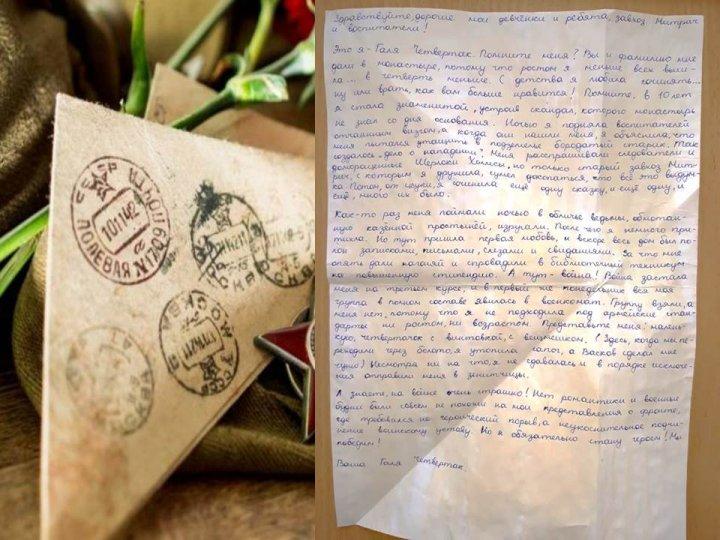 СССР
ПОЛЕВАЯ ПОЧТА
10 1 42
МОСКВА
СССР
Здравствуйте, дорогие мои девчёнки и ребята, завхоз Митрич
и воспитатели!
Это я - Галя Четвертак. Помните меня? Вы и фамилию мне
дали в монастыре, потому что ростом я меньше всех вышла...
в четверть меньше. С детства я любила сочинять...
ну или врать, как вам больше нравится! Помните, в 10 лет
я стала знаменитой, устроив скандал, которого монастырь
не знал со дня основания. Ночью я подняла воспитателей
отчаянным визгом, а когда они нашли меня, я объяснила, что
меня пытался утащить в подземелье бородатый старик. Так
создалось "дело о нападении". Меня расспрашивали следователи и
доморощенные Шерлоки Холмсы, но только старый завхоз Мит-
рич, с которым я дружила, сумел докопаться, что всё это выдум-
ка. Потом, от скуки, я сочинила ещё одну сказку, и ещё одну, и
ещё, много их было.
Как-то раз меня поймали ночью в обличье ведьмы, обмотан-
ную казённой простынёй, изругали. После чего я немного при-
тихла. Но тут пришла первая любовь, и вскоре весь дом был по-
лон записками, письмами, слезами и свиданиями. За что мне
опять дали нагоняй и спровадили в библиотечный техникум
на повышенную стипендию. А тут - война! Война застала
меня на третьем курсе, и в первый же понедельник вся моя
группа в полном составе явилась в военкомат. Группу взяли, а
меня нет, потому что я не подходила под армейские стан-
дарты ни ростом, ни возрастом. Представьте меня: малень-
кую, Четверточок с винтовкой, с вещмешком. (Здесь, когда мы пе-
реходили через болото, я утопила сапог, а Васков сделал мне
чуню) Несмотря ни на что, я не сдавалась и в порядке исключе-
ния отправили меня в зенитчицы.
А знаете, на войне очень страшно! Нет романтики и военные
будни были совсем не похожи на мои представления о фронте,
где требовался не героический порыв, а неукоснительное подчи-
нение воинскому уставу. Но я обязательно стану героем! Мы
победим!
Ваша Галя Четвертак.